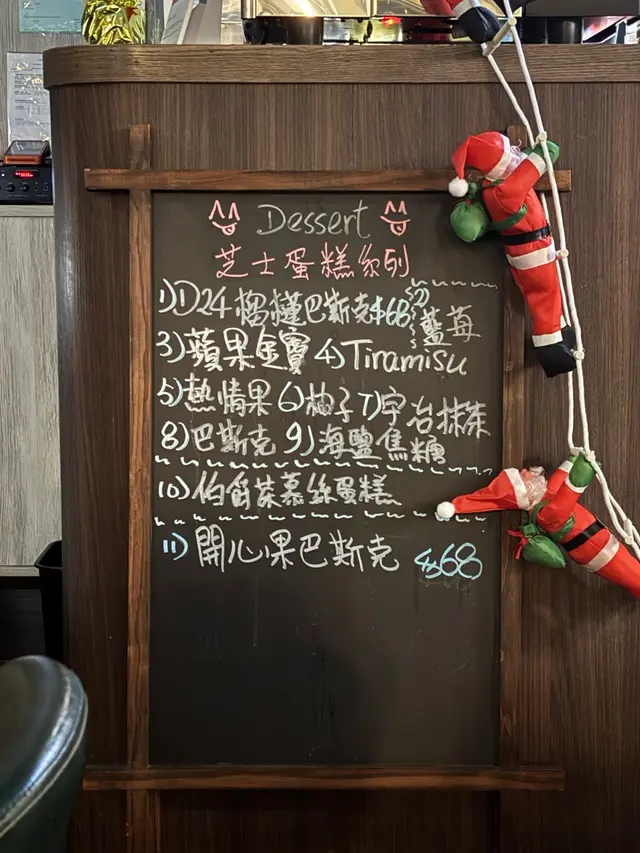 Dessert
芝士蛋糕系列
1) D24榴槤巴斯克$68 2) 藍莓
3) 蘋果金寶 4) Tiramisu
5) 熱情果 6) 柚子 7) 宇治抹茶
8) 巴斯克 9) 海鹽焦糖
10) 伯爵茶慕絲蛋糕
11) 開心果巴斯克 $68